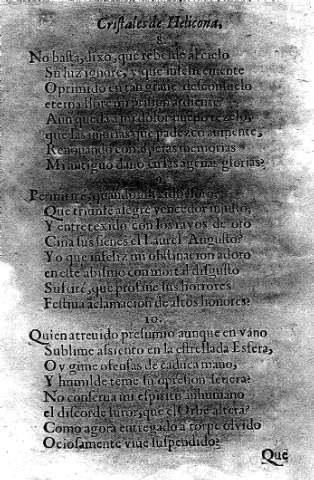 Cristales de Helicona,
8.
No basta, dixo, que rebelde al cielo
Su luz ignore, y que infelicemente
Oprimido en tan graue desconsuelo
eterna llore mi prision ardiente?
Aun queda a mi dolor nueuo rezelo,
que las injurias que padezco aumente,
Renouando con asperas memorias
Mi antiguo daño en las agenas glorias?
9.
Permitire, quando
Que triunfe alegre vencedor injusto,
Y entretexido con los rayos de oro
Ciña sus sienes el Laurel Augusto?
Yo que infeliz mi obstinacion adoro
en este abismo con mortal disgusto
Sufriré, que profane sus horrores
Festiua aclamacion de altos honores?
10.
Quien atreuido presumio aunque en vano
Sublime assiento en la estrellada Esfera,
Oy gime ofensas de caduca mano,
Y humilde teme su opresion seuera?
No conserua mi espiritu inhumano
el discorde furor, que el Orbe altera?
Como agora entregado a torpe oluido
Ociosamente viue suspendido?
Que